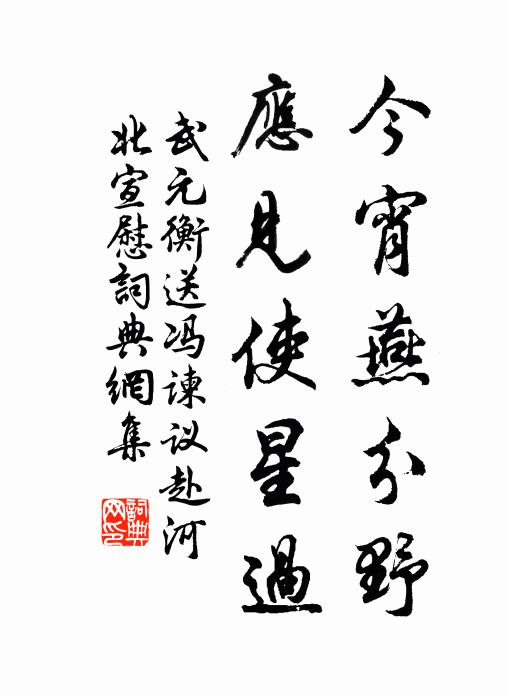 今宵燕分野
應見使星過
武元衡送冯谏议赴河
北宣慰詞典網集
詞典
网印